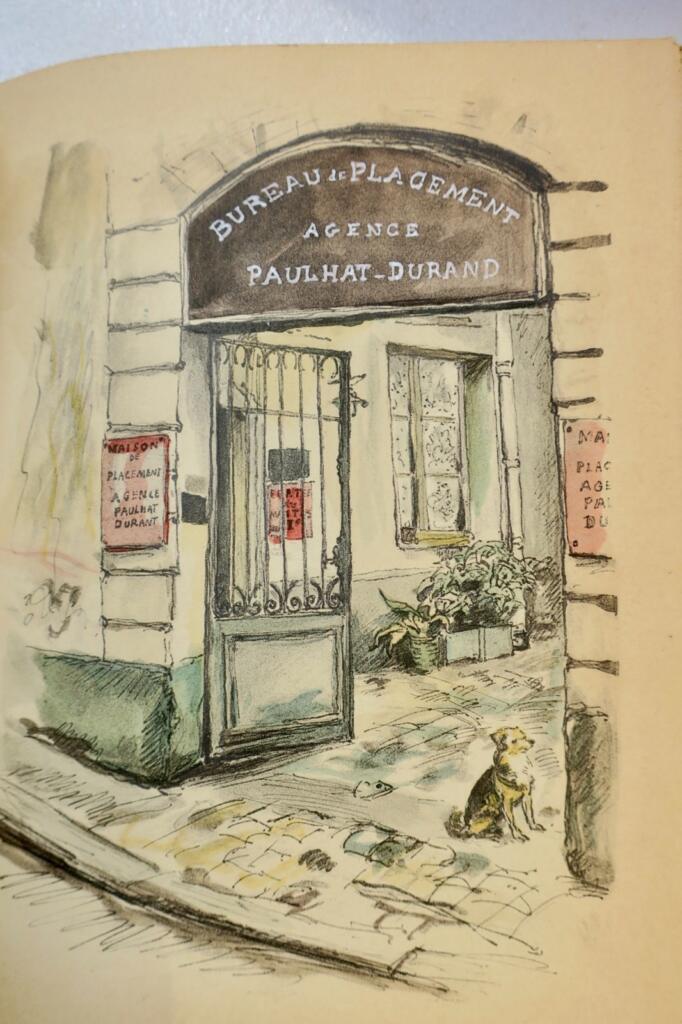 BUREAU de PLACEMENT
AGENCE
PAULHAT-DURAND
MAISON
DE
PLACEMENT
AGENCE
PAULHAT
DURANT
MA
PLAC
AGE
PA
DU